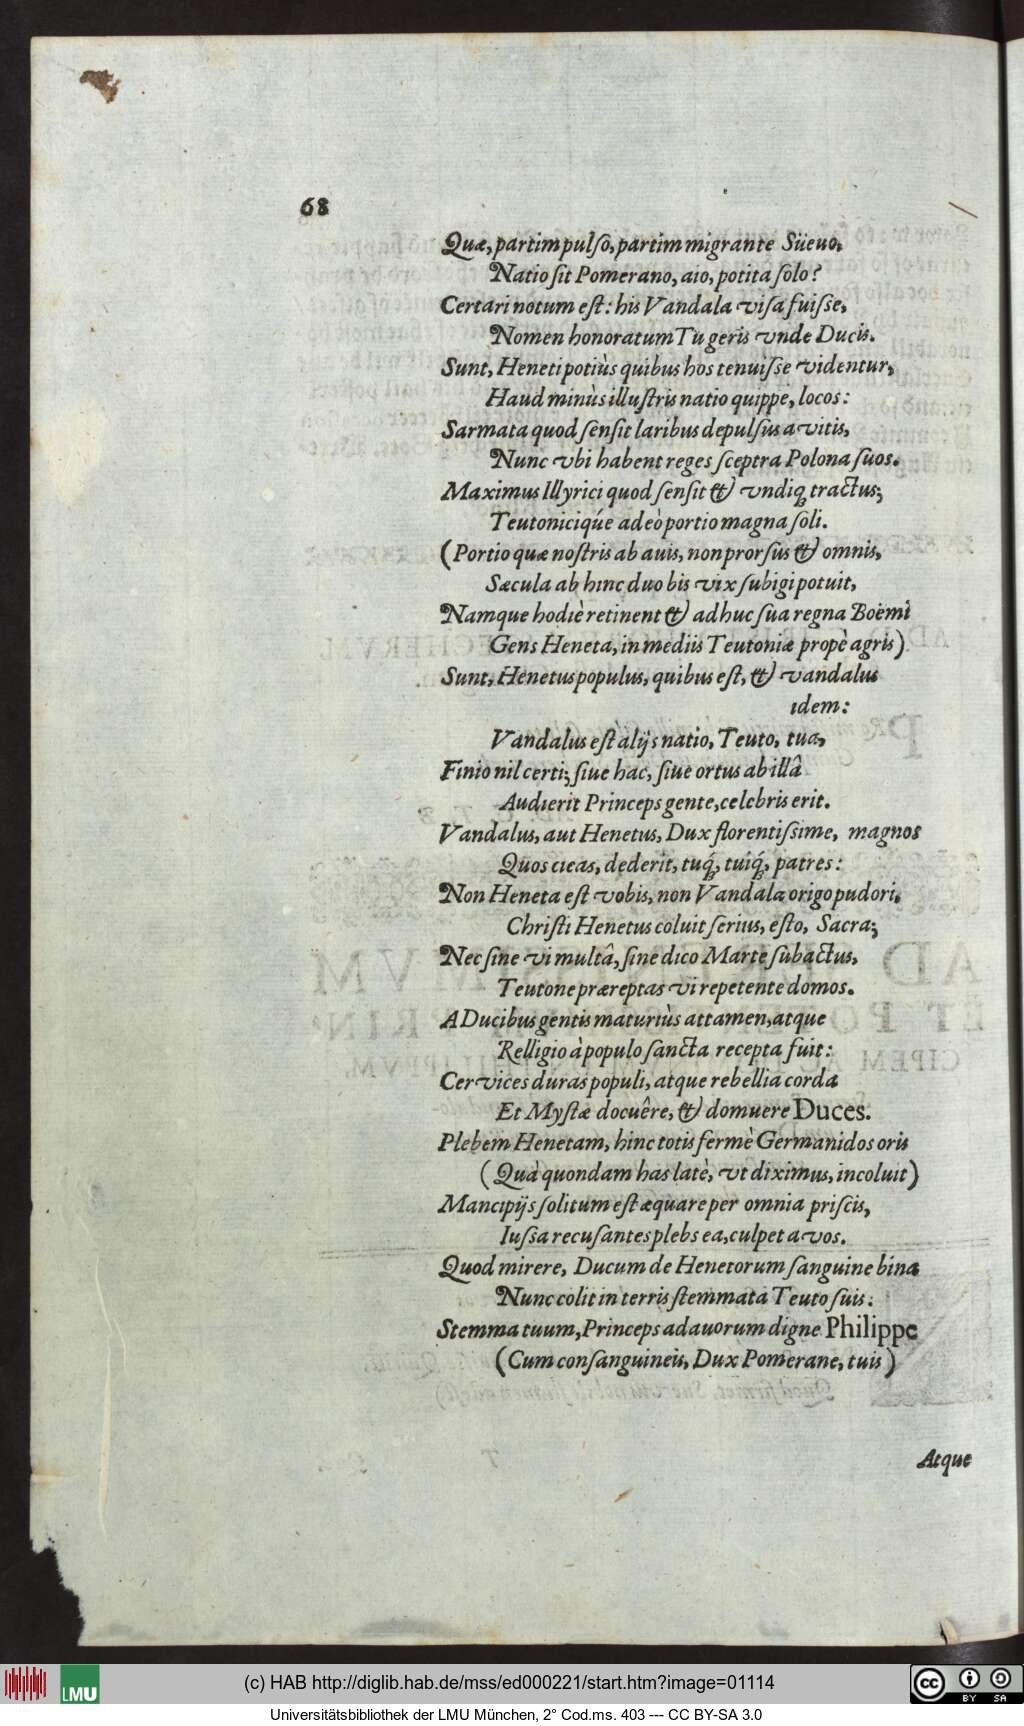 68
Quæ, partim pulſo, partim migrante Süeuo,
Natio ſit Pomerano, aio, potita ſolo?
Certari notum eſt: his Vandala viſa fuiſse,
Nomen honoratum Tu geris vnde Ducis.
Sunt, Heneti potiùs quibus hos tenuiſse videntur,
Haud minùs illuſtris natio quippe, locos:
Sarmata quod ſenſit laribus depulſus avitis,
Nunc vbi habent reges ſceptra Polona ſuos.
Maximus Illyrici quod ſenſit & vndiq; tractus;
Teutoniciq́ue adeò portio magna ſoli.
(Portio quæ noſtris ab auis, non prorſus & omnis,
Sæcula ab hinc duo bis vix ſubigi potuit,
Namque hodiè retinent & adhuc ſua regna Boëmi
Gens Heneta, in mediis Teutoniæ propè agris)
Sunt, Henetus populus, quibus eſt, & vandalus
idem:
Vandalus eſt alijs natio, Teuto, tua,
Finio nil certi; ſiue hac, ſiue ortus ab illâ
Audierit Princeps gente, celebris erit.
Vandalus, aut Henetus, Dux florentiſsime, magnos
Quos cieas, dederit, tuq́;, tuiq́;, patres:
Non Heneta eſt vobis, non Vandala origo pudori,
Chriſti Henetus coluit ſerius, eſto, Sacra;
Nec ſine vi multâ, ſine dico Marte ſubactus,
Teutone præreptas vi repetente domos.
A Ducibus gentis maturiùs attamen, atque
Relligio à populo ſancta recepta fuit:
Cervices duras populi, atque rebellia corda
Et Myſtæ docuêre, & domuere Duces.
Plebem Henetam, hinc totis fermè Germanidos oris
(Quà quondam has latè, vt diximus, incoluit)
Mancipijs ſolitum eſt æquare per omnia priſcis,
Iuſsa recuſantes plebs ea, culpet avos.
Quod mirere, Ducum de Henetorum ſanguine bina
Nunc colit in terris ſtemmata Teuto ſuis:
Stemma tuum, Princeps adauorum digne Philippe
(Cum conſanguineis, Dux Pomerane, tuis)
Atque
(c) HAB http://diglib.hab.de/mss/ed000221/start.htm?image=01114
LMU
BY SA
Universitätsbibliothek der LMU München, 2° Cod.ms. 403 --- CC BY-SA 3.0